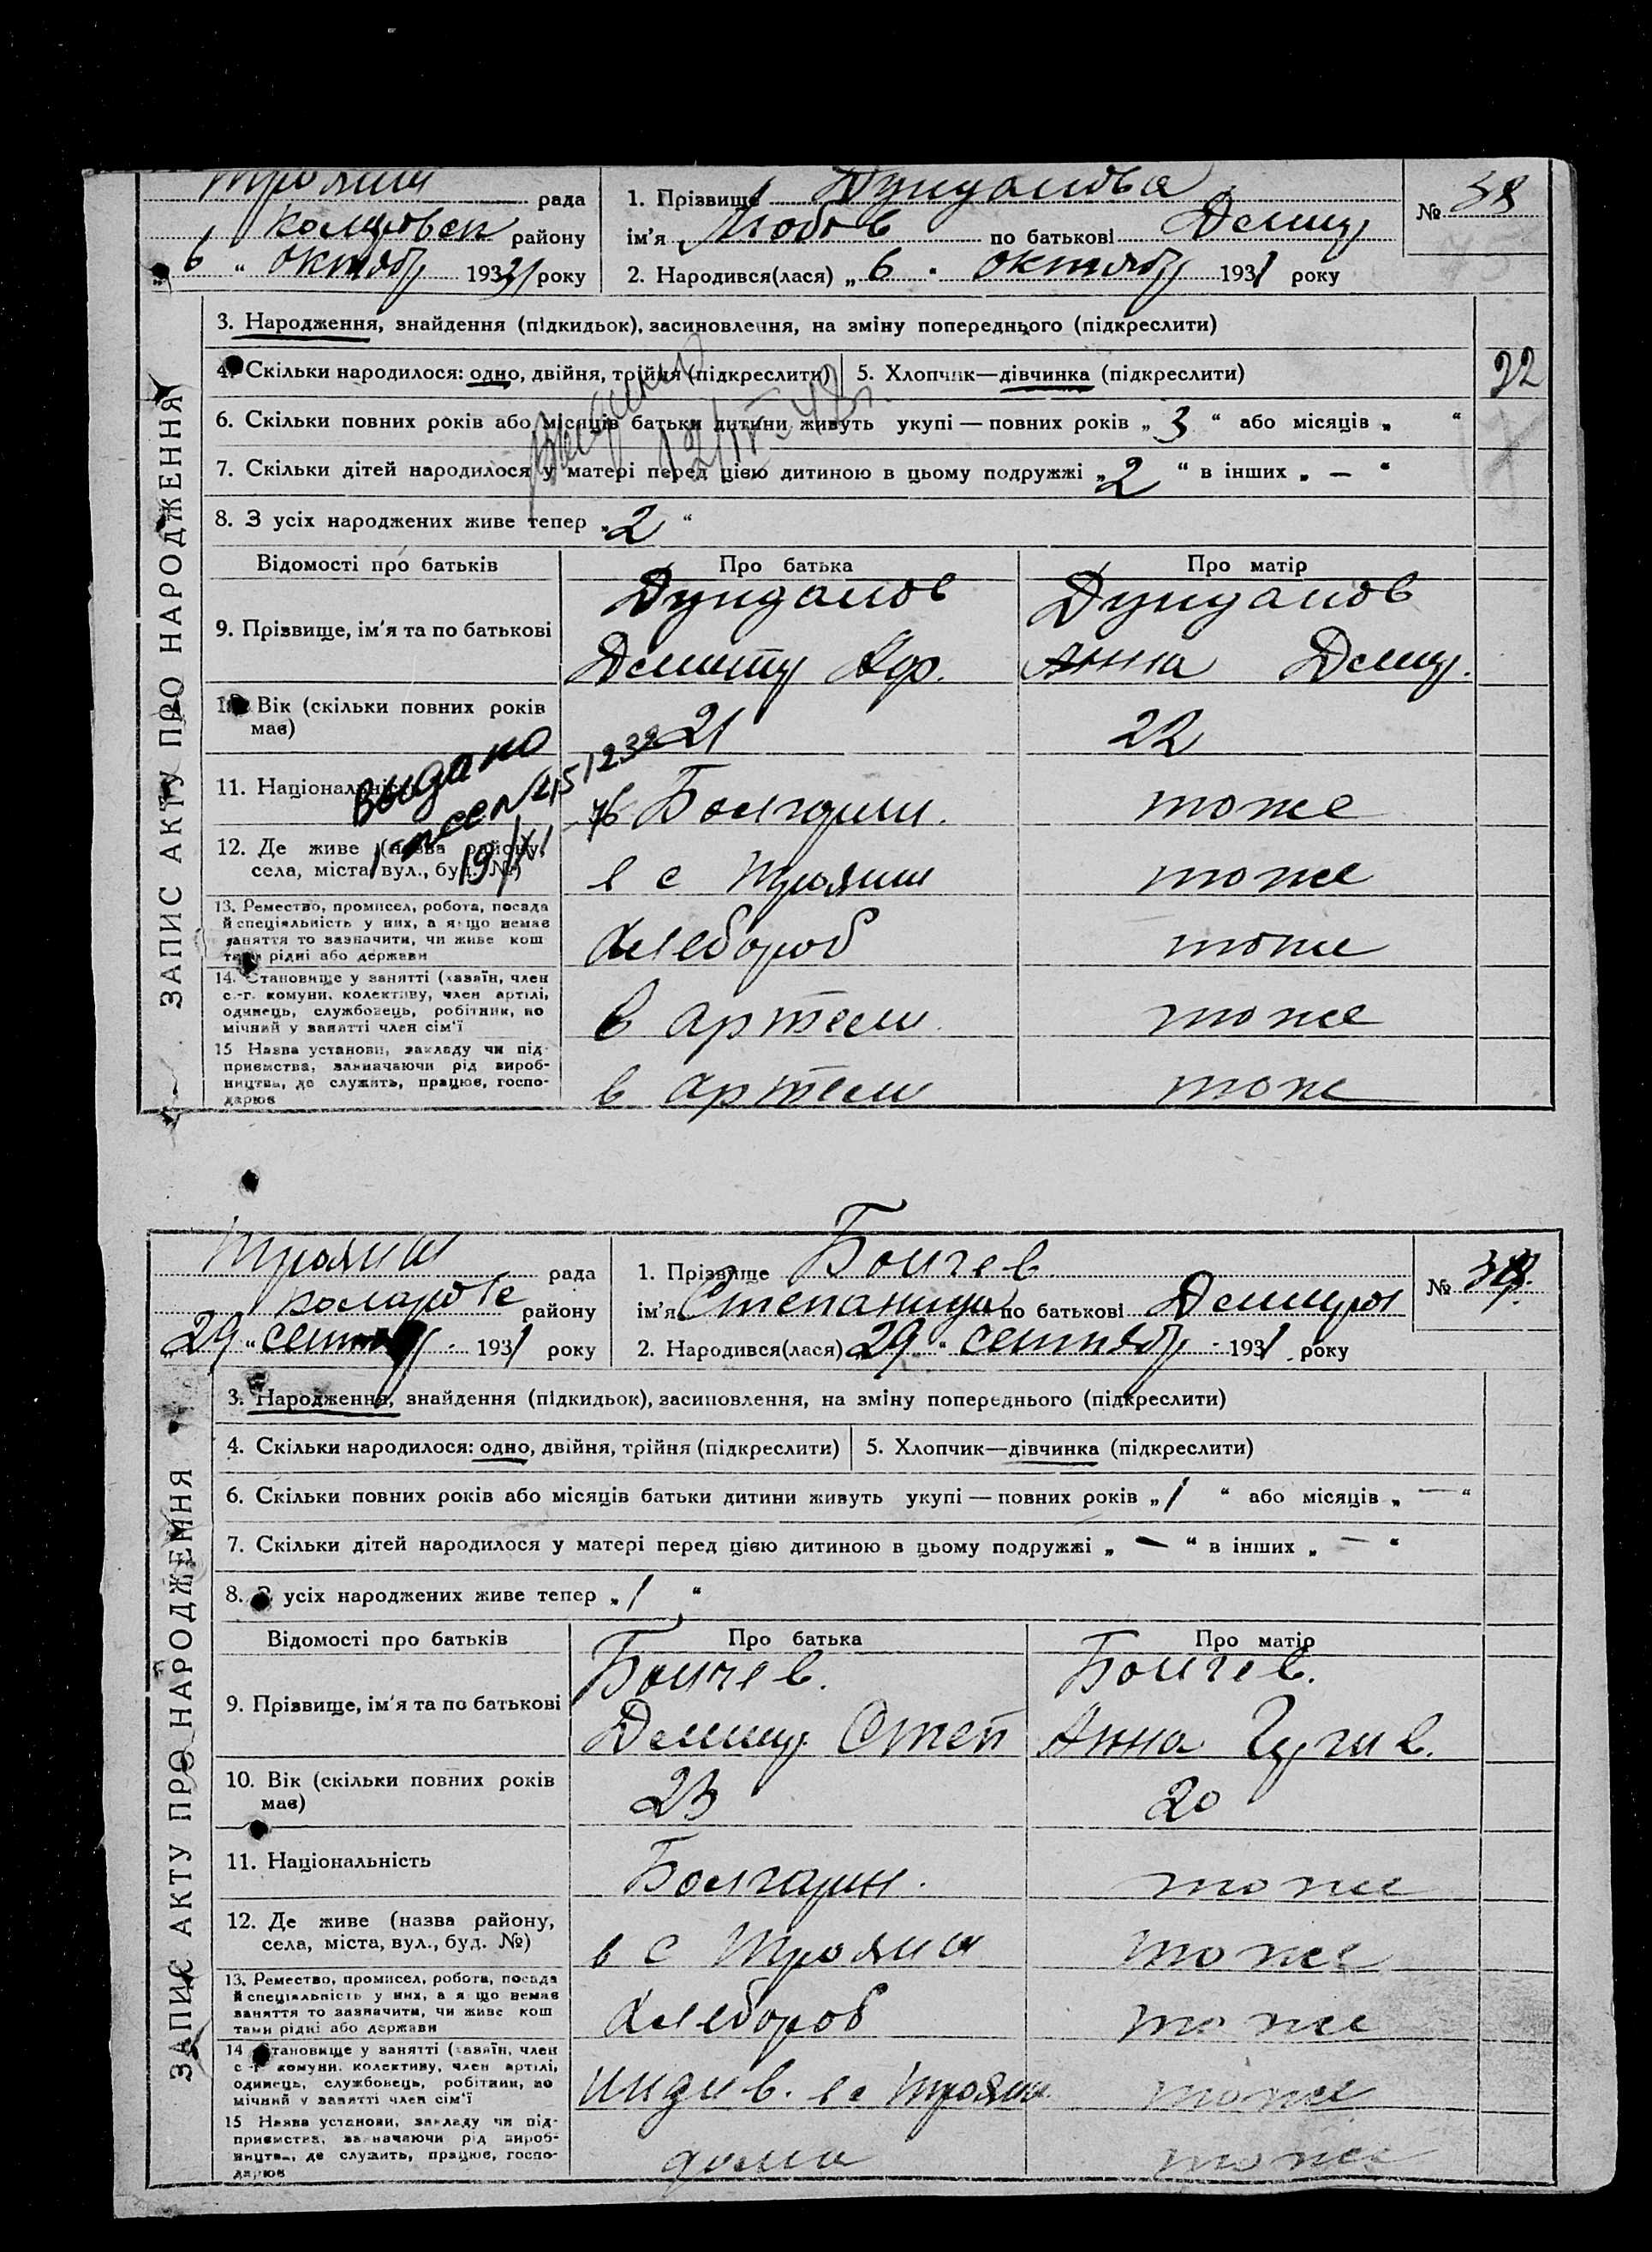 Трояни рада
Коларовск району
6 " октябр 1931 року
1. Прізвище Дунданова
ім'я Любов по батькові Демит
2. Народився(лася) „ 6 " октябр 1931 року
№ 38
ЗАПИС АКТУ ПРО НАРОДЖЕННЯ
3. Народження, знайдення (підкидьок), засиновлення, на зміну попереднього (підкреслити)
4. Скільки народилося: одно, двійня, трійня (підкреслити) 5. Хлопчик—дівчинка (підкреслити)
22
6. Скільки повних років або місяців батьки дитини живуть укупі — повних років „ 3 “ або місяців „ “
7. Скільки дітей народилося у матері перед цією дитиною в цьому подружжі „ 2 “ в інших „ — “
8. З усіх народжених живе тепер „ 2 “
Відомості про батьків Про батька Про матір
9. Прізвище, ім'я та по батькові
Дунданов Дунданов
Демит Анна Демит.
10. Вік (скільки повних років має) 21 22
11. Національність Болгарин. тоже
выдано
19/XI
12. Де живе (назва району, села, міста, вул., буд. №) в с Трояни тоже
13. Ремество, промисел, робота, посада й спеціяльність у них, а якщо немає заняття то зазначити, чи живе коштами рідні або держави хлебороб тоже
14. Становище у занятті (хазяїн, член с.-г. комуни, колективу, член артілі, одинець, службовець, робітник, помічний у занятті член сім'ї в артели тоже
15 Назва установи, закладу чи підприємства, зазначаючи рід виробництва, де служить, працює, господарює в артели тоже
Трояни рада
Коларовс району
29 " сентябр. 1931 року
1. Прізвище Бончев
ім'я Степанида по батькові Демитров
2. Народився(лася) 29 " сентябр. 1931 року
№
ЗАПИС АКТУ ПРО НАРОДЖЕННЯ
3. Народження, знайдення (підкидьок), засиновлення, на зміну попереднього (підкреслити)
4. Скільки народилося: одно, двійня, трійня (підкреслити) 5. Хлопчик—дівчинка (підкреслити)
6. Скільки повних років або місяців батьки дитини живуть укупі — повних років „ 1 “ або місяців „ — “
7. Скільки дітей народилося у матері перед цією дитиною в цьому подружжі „ — “ в інших „ — “
8. З усіх народжених живе тепер „ 1 “
Відомості про батьків Про батька Про матір
9. Прізвище, ім'я та по батькові
Бончев. Бончев.
Демит. Степ Анна
10. Вік (скільки повних років має) 23 20
11. Національність Болгарин. тоже
12. Де живе (назва району, села, міста, вул., буд. №) в с Трояни тоже
13. Ремество, промисел, робота, посада й спеціяльність у них, а якщо немає заняття то зазначити, чи живе коштами рідні або держави хлебороб тоже
14 Становище у занятті (хазяїн, член с.-г. комуни, колективу, член артілі, одинець, службовець, робітник, помічний у занятті член сім'ї индив. в с Трояни тоже
15 Назва установи, закладу чи підприємства, зазначаючи рід виробництва, де служить, працює, господарює дома тоже